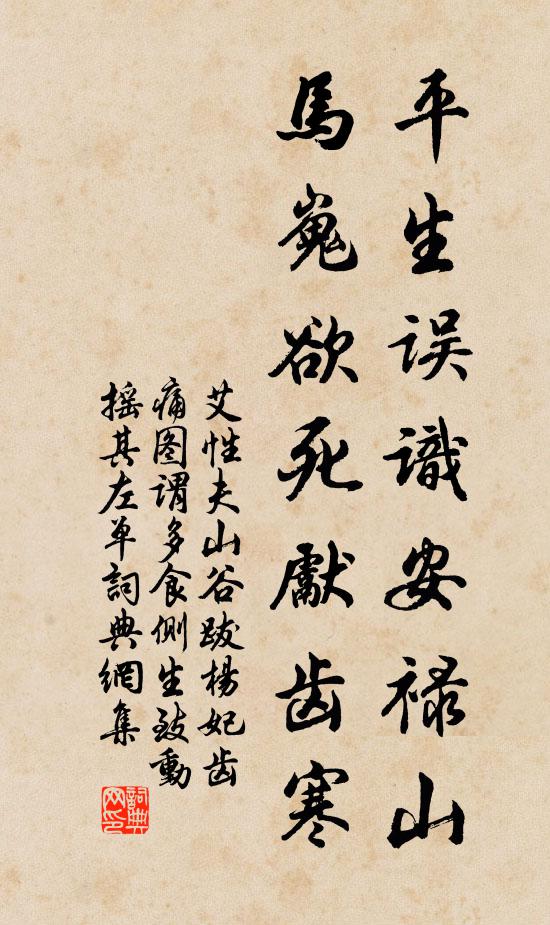 平生误識安禄山
馬嵬欲死獻齿寒
艾性夫山谷跋楊妃齿
痛图谓多食侧生致動
摇其左单詞典網集
詞典网印